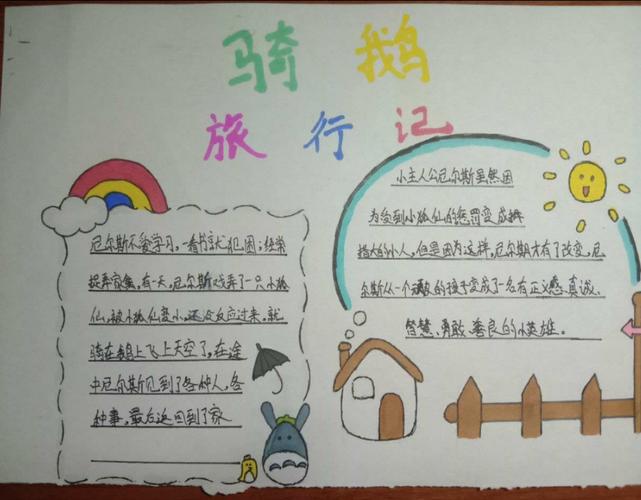 骑鹅
旅行记
尼尔斯不爱学习，一看书就犯困；经常
捉弄家禽，有一天，尼尔斯戏弄了一只小狐
仙，被小狐仙变小，还没反应过来，就
骑在鹅上飞上天空了，在途
中尼尔斯见到了各种人，各
种事，最后返回到了家
小主人公尼尔斯虽然因
为受到小狐仙的惩罚变成拇
指大的小人，但是因为这样，尼尔斯才有了改变，尼
尔斯从一个顽皮的孩子变成了一名有正义感、真诚、
智慧、勇敢、善良的小英雄。